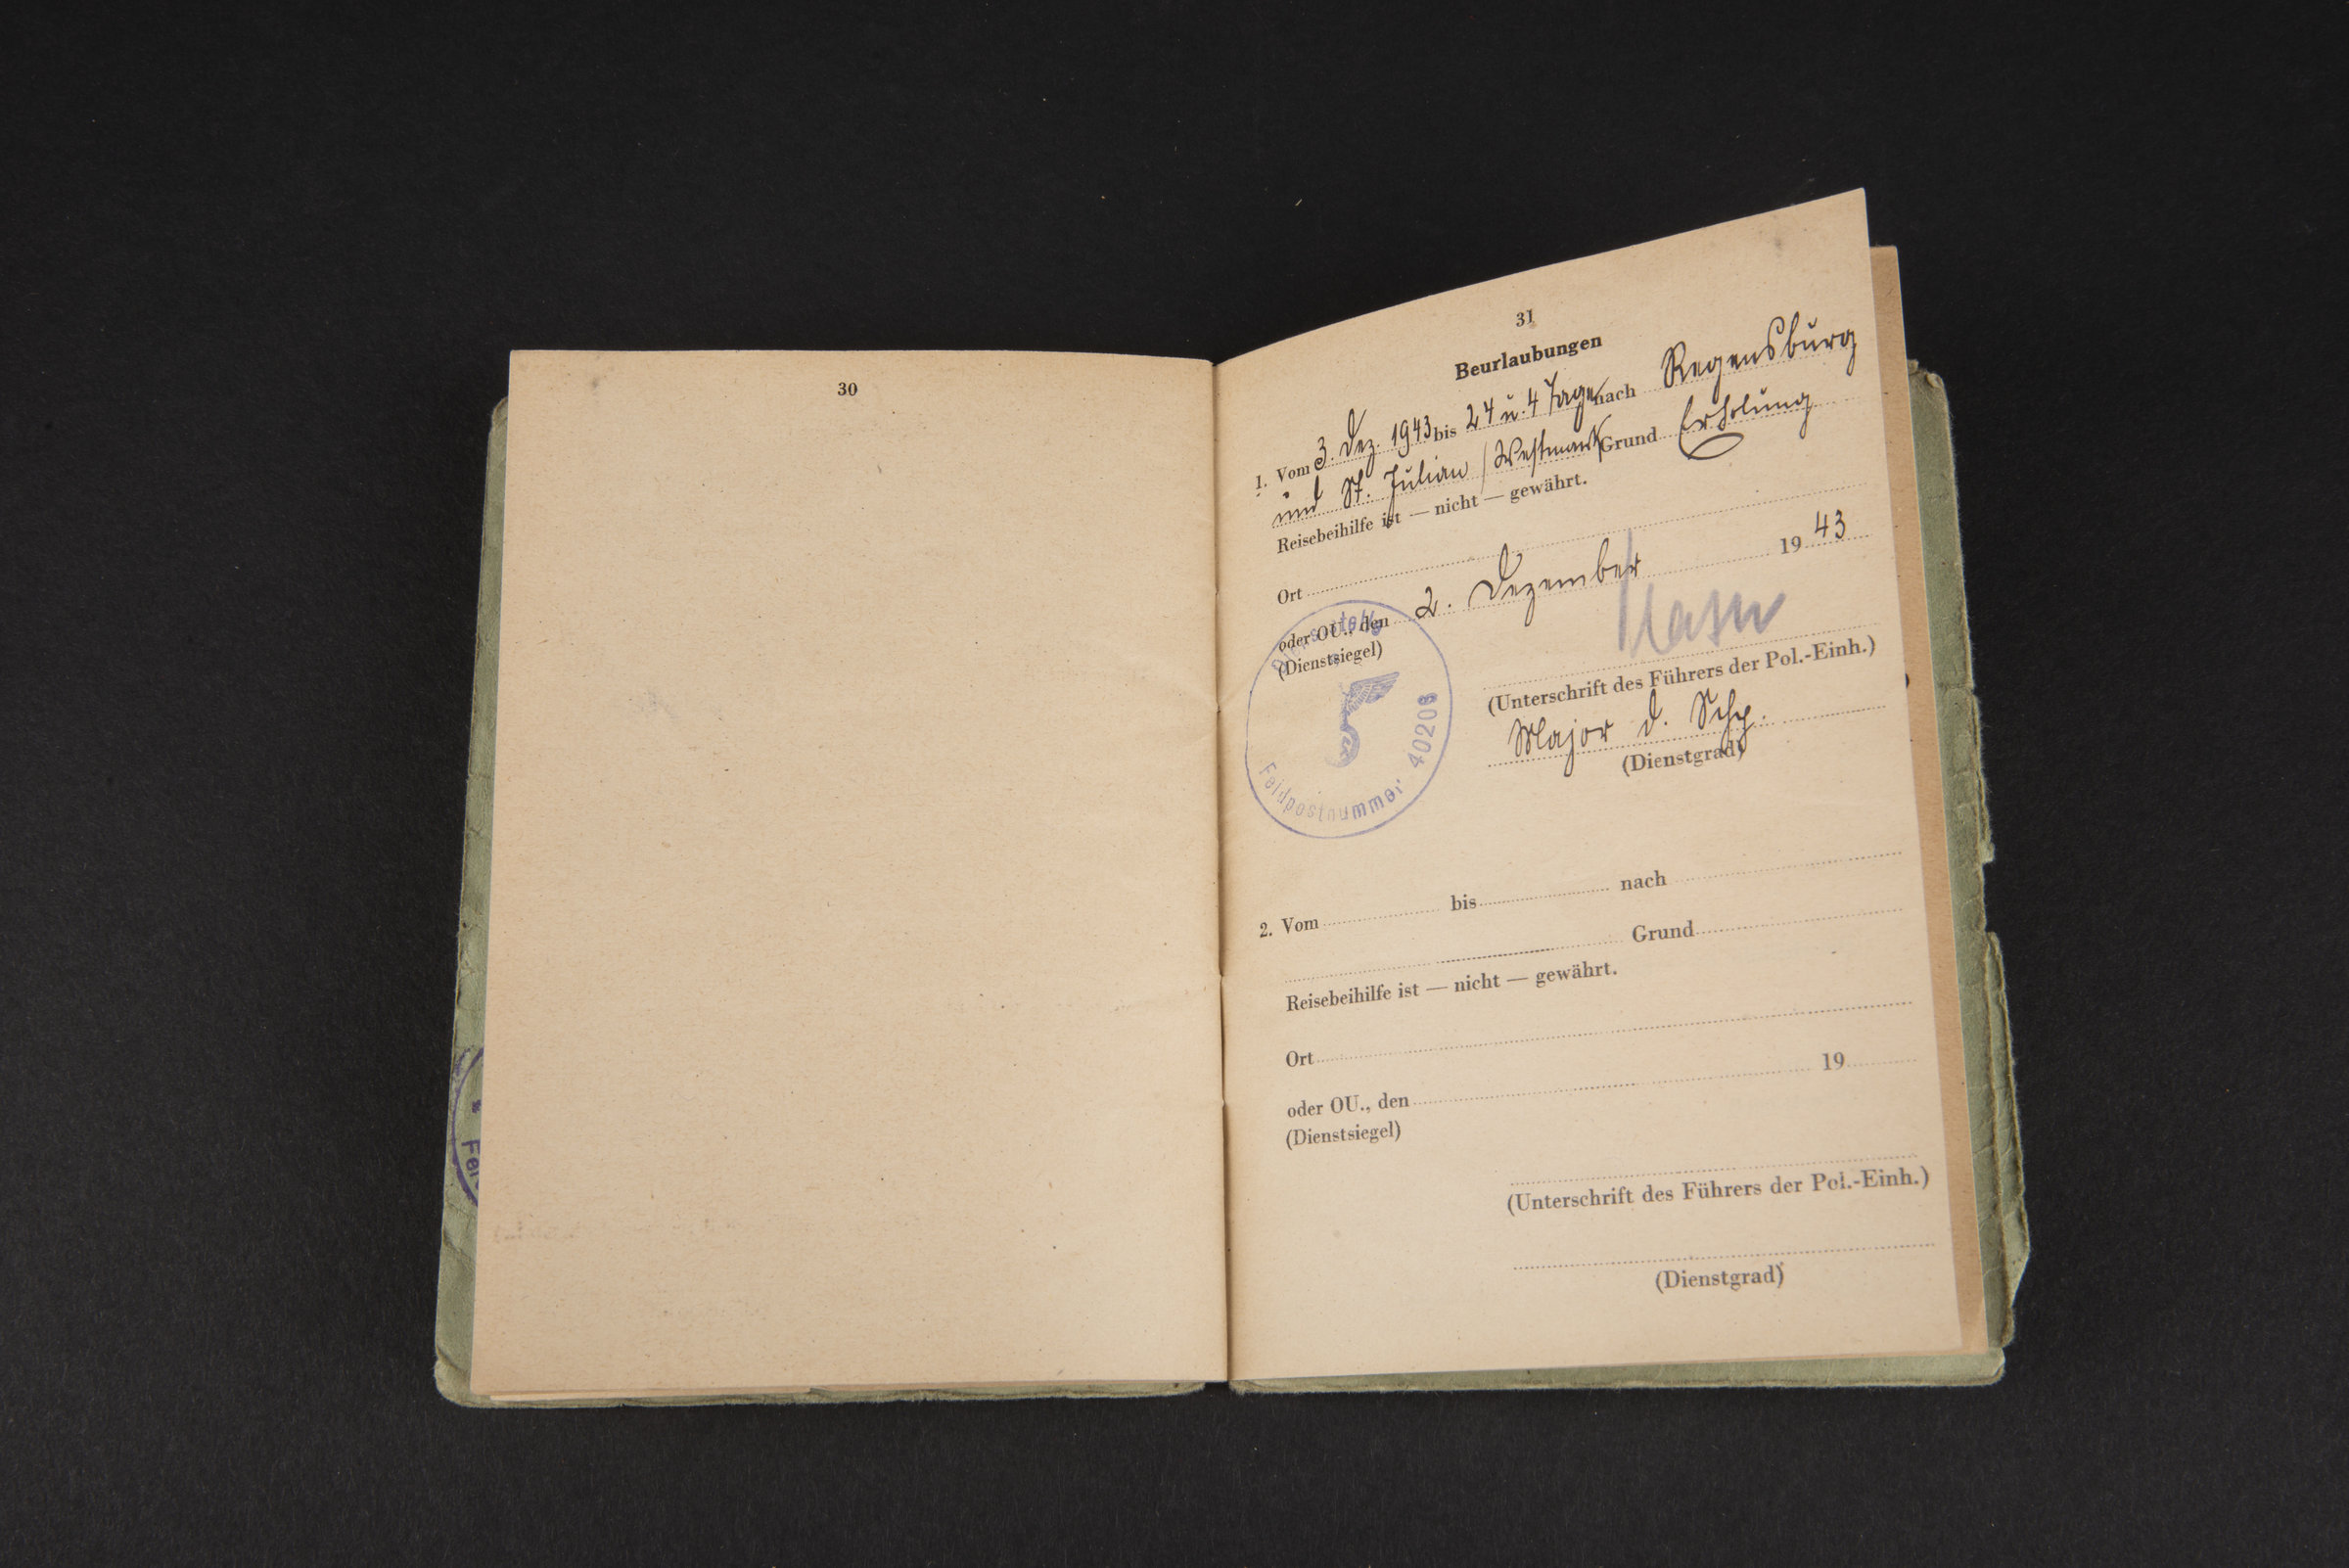 30
31
Beurlaubungen
1. Vom 3. Dez. 1943 bis 24 u. 4 Tage nach Regensburg
und St. Julian / Westmark Grund Erholung
Reisebeihilfe ist — nicht — gewährt.
Ort
oder OU., den 2. Dezember 1943
(Dienstsiegel)
Dienststelle
Feldpostnummer 40208
(Unterschrift des Führers der Pol.-Einh.)
Major d. Schp.
(Dienstgrad)
2. Vom bis nach
Grund
Reisebeihilfe ist — nicht — gewährt.
Ort
oder OU., den 19
(Dienstsiegel)
(Unterschrift des Führers der Pol.-Einh.)
(Dienstgrad)